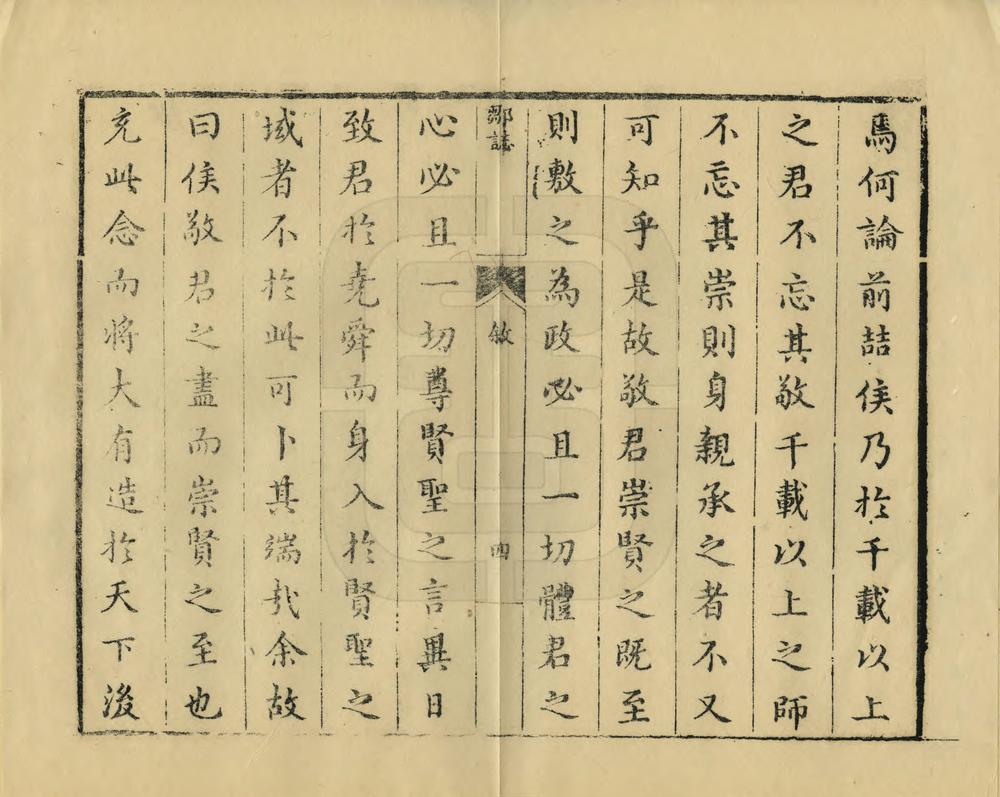 焉何論前喆侯乃扵千載以上
之君不忘其敬千載以上之師
不忘其崇則身親承之者不又
可知乎是故敬君崇賢之既至
則敷之為政必且一切體君之
鄒誌
敘
四
心必且一切尊賢聖之言異日
致君扵堯舜而身入扵賢聖之
域者不扵此可卜其端哉余故
曰侯敬君之盡而崇賢之至也
充此念而将大有造扵天下後